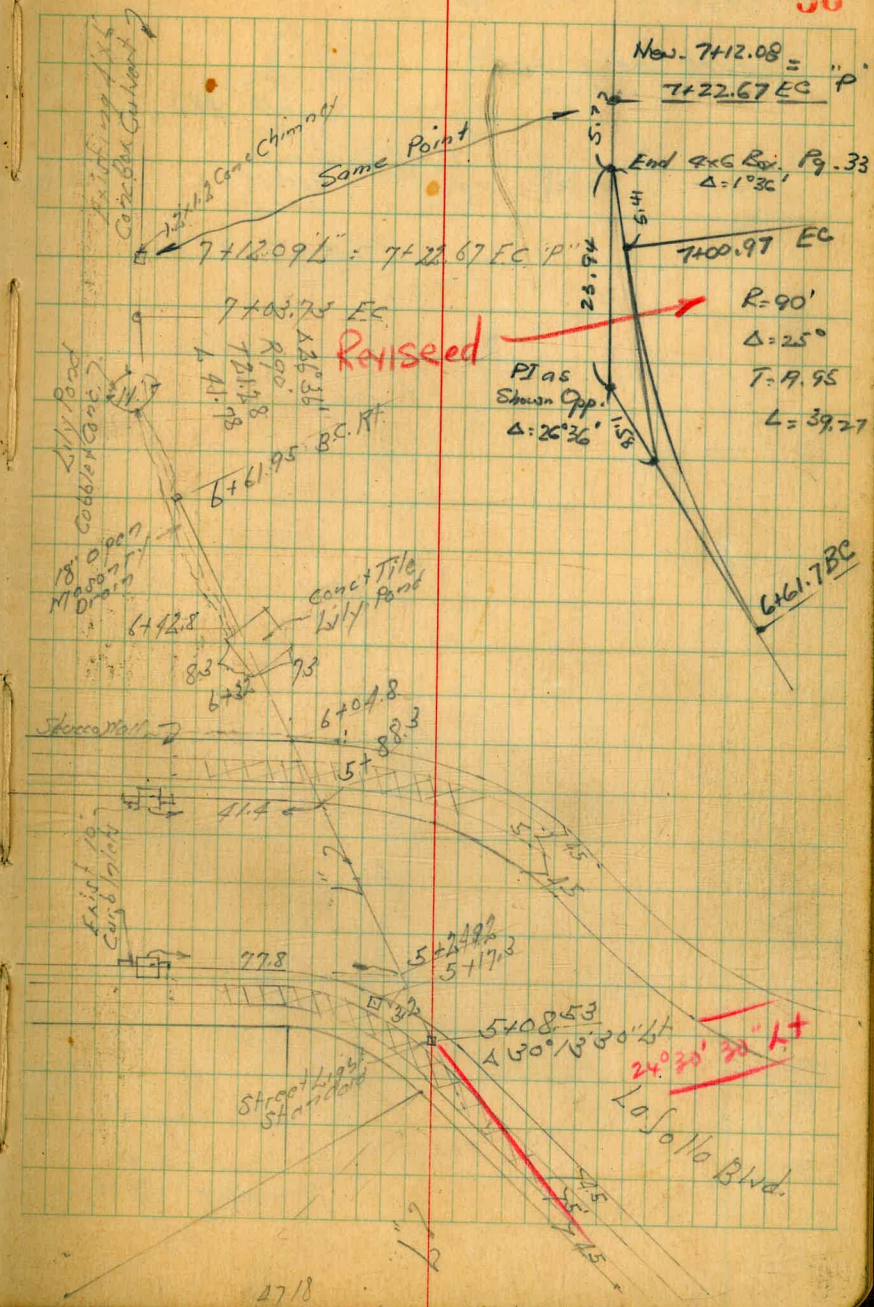 New. 7+12.08 =
7+22.67 EC "P"
5.7
End 4x6 Box. Pg. 33
Δ=1°36'
5.41
7+00.97 EC
23.94
R=90'
Δ=25°
T=19.95
L=39.27
PI as
Shown Opp.
Δ=26°36'
1.58
6+61.7 BC
Reviseed
Existing 4x6
Conc Box Culvert
1.3x1.3 Conc Chimney
Same Point
7+12.09 "L" = 7+22.67 EC "P"
7+03.73 EC
Δ 26°36'
R 90'
T 21.28
L 41.78
6+61.95 B.C. Rt
Lily Pond
Cobble & Conc.
18" Open
Mason
Drain
Conc & Tile
Lily Pond
6+42.8
8.3
7.3
6+32
6+04.8
5+88.3
Stucco Wall
41.4
"L"
Exist 10'
Curb Inlets
77.8
5+17.3
3.2
5+08.53
Δ 30°13'30" Lt
24°30'30" Lt
Street Light
Standard
La Jolla Blvd.
45
45
"L"
4718